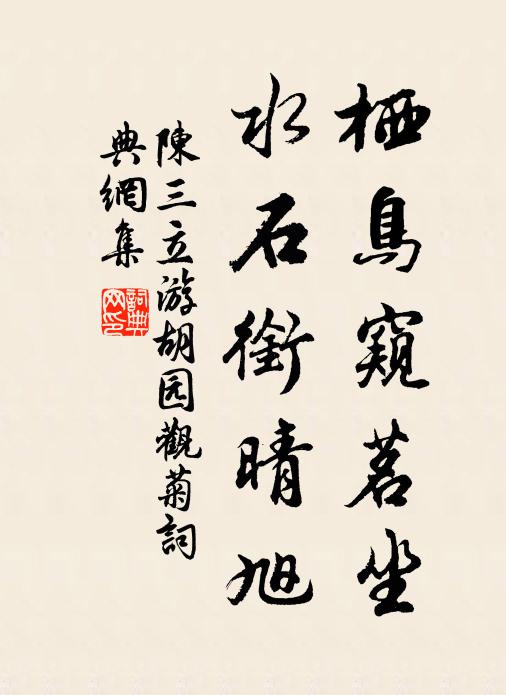 栖鳥窺茗坐
水石銜晴旭
陳三立游胡园觀菊詞
典網集
詞典
网印